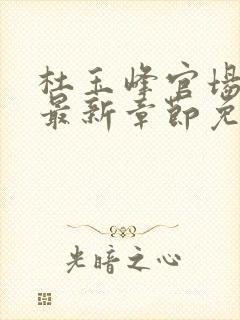 杜玉峰官场
最新章节免
光暗之心